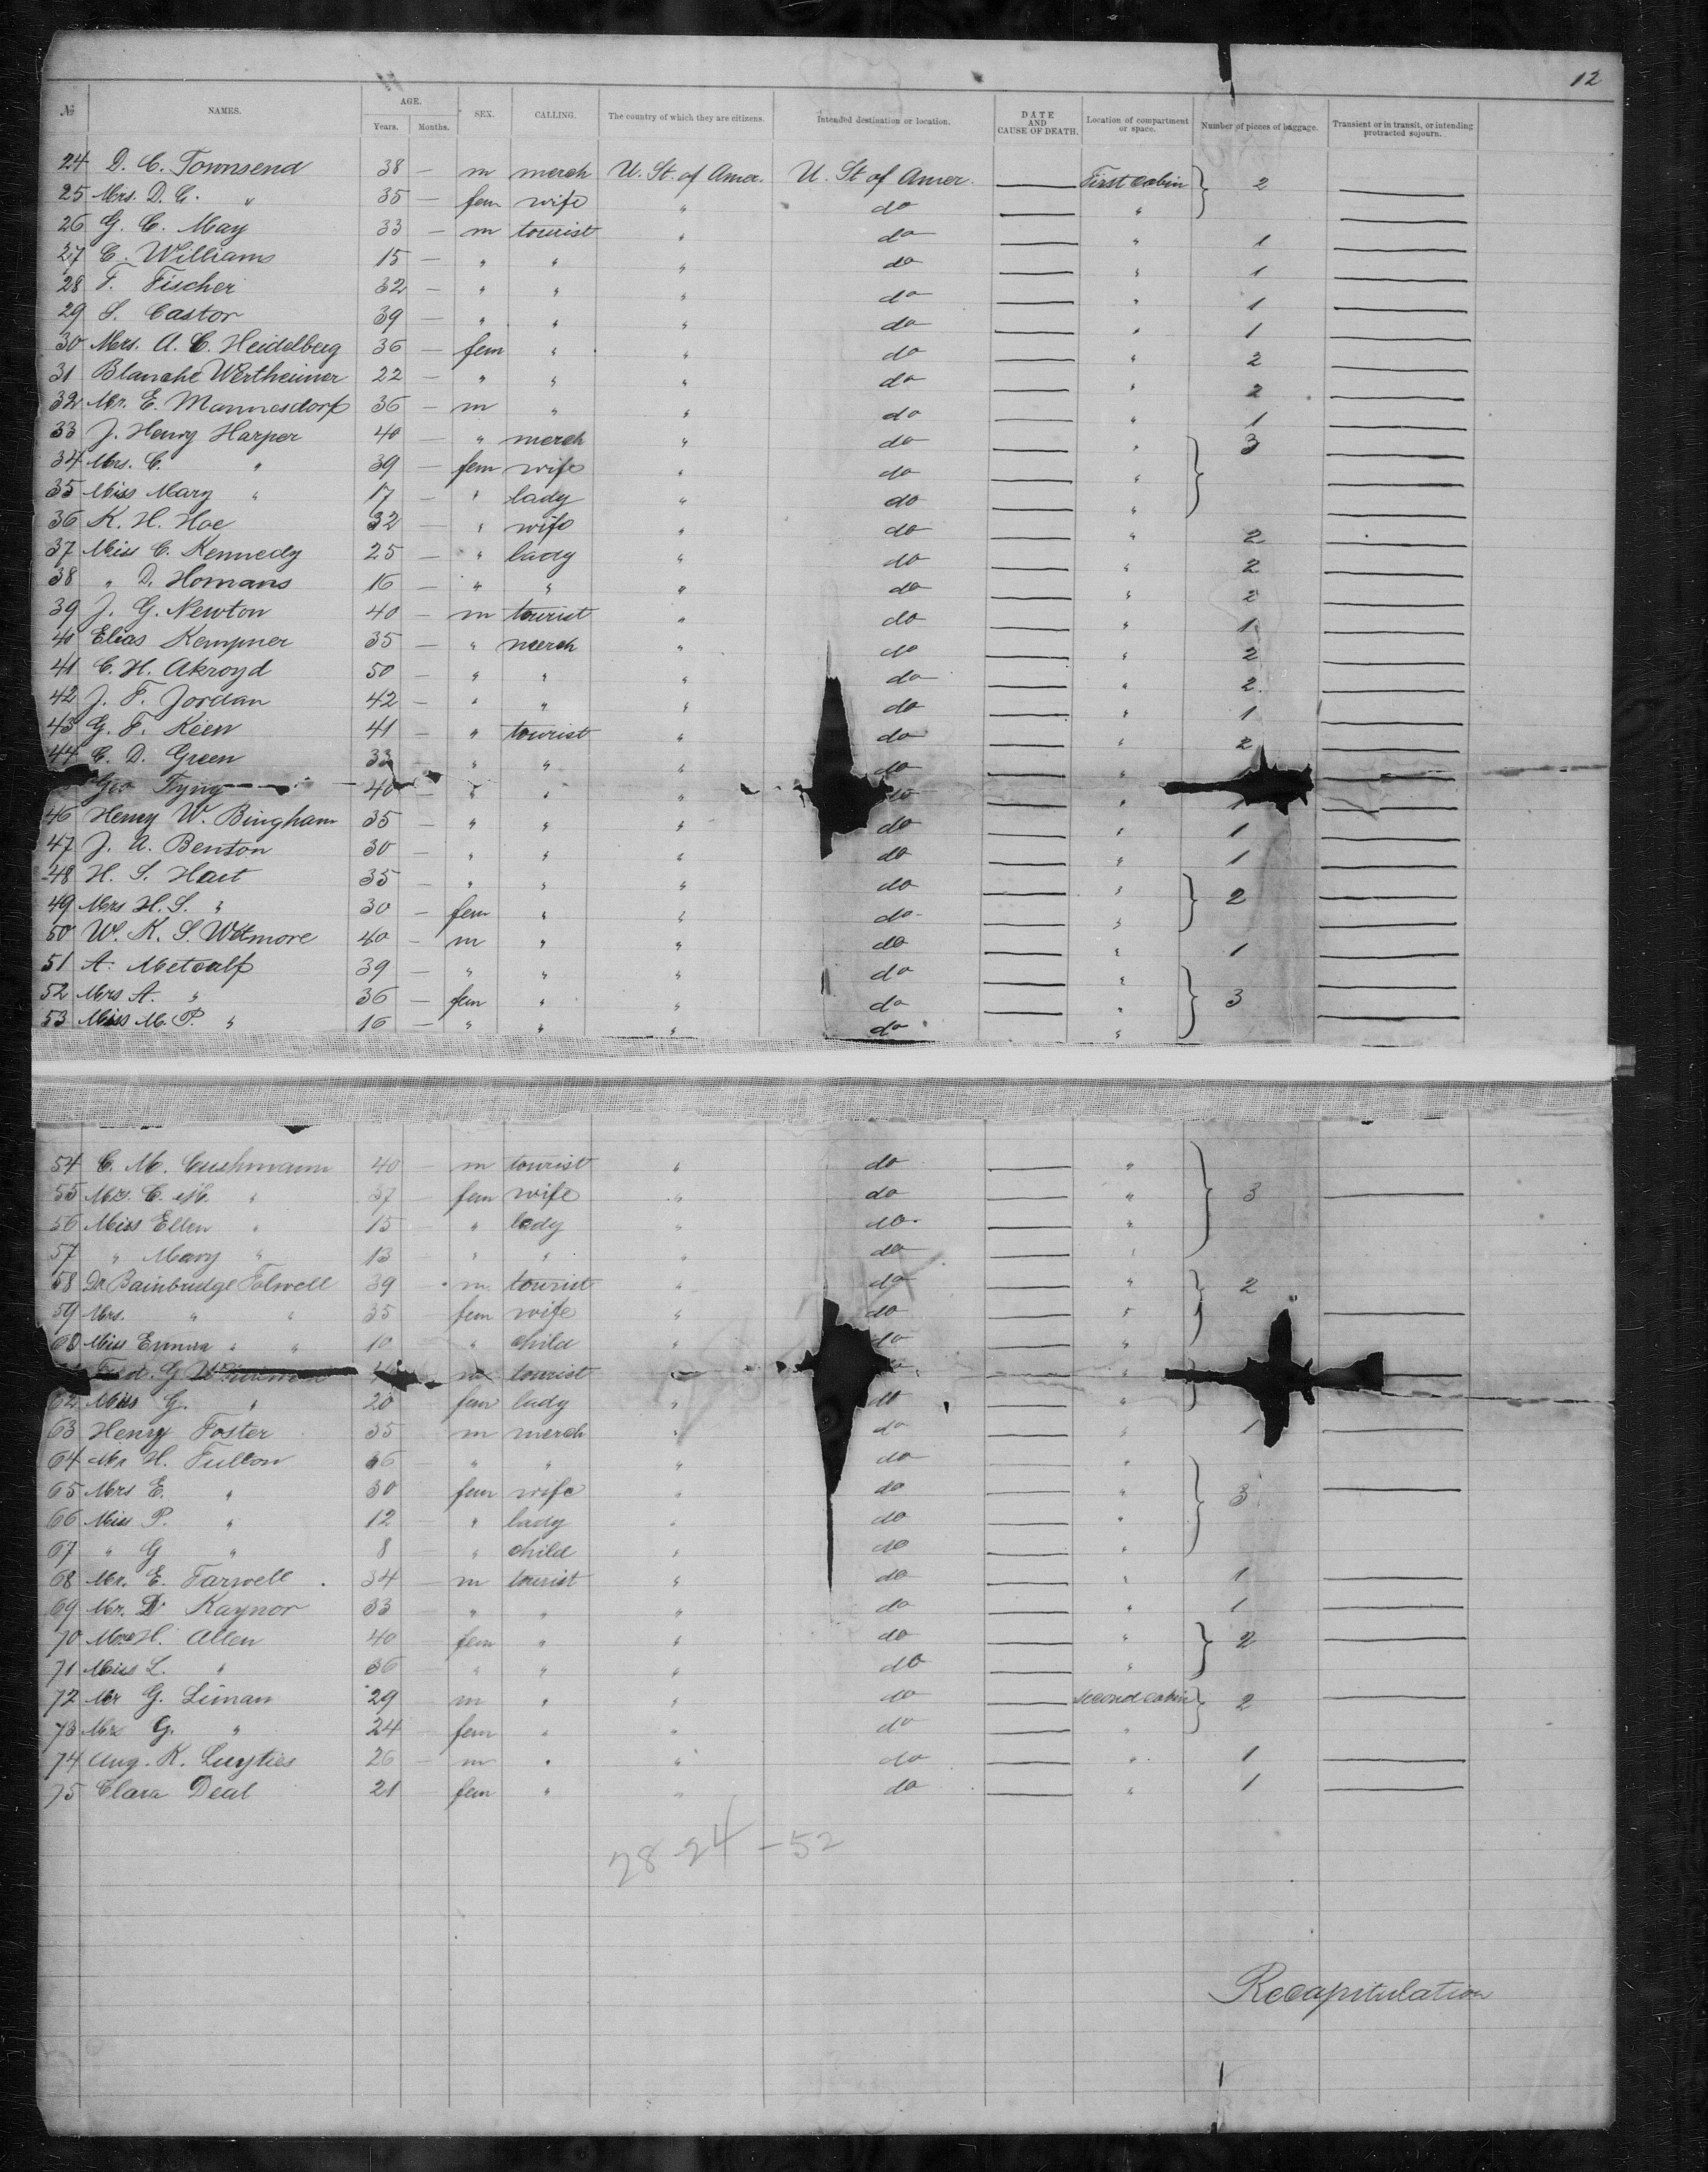 12
№ NAMES. AGE. Years. Months. SEX. CALLING. The country of which they are citizens. Intended destination or location. DATE AND CAUSE OF DEATH. Location of compartment or space. Number of pieces of baggage. Transient or in transit, or intending protracted sojourn.
24 D. C. Townsend 38 — m merch U. St. of Amer. U. St of Amer. — First Cabin } 2 —
25 Mrs. D. C. " 35 — fem wife " do — " —
26 G. C. May 33 — m tourist " do — " 1 —
27 C. Williams 15 — " " " do — " 1 —
28 F. Fischer 32 — " " " do — " 1 —
29 S. Castor 39 — " " " do — " 1 —
30 Mrs. A. C. Heidelberg 36 — fem " " do — " 2 —
31 Blanche Wertheimer 22 — " " " do — " 2 —
32 Mr. E. Mannesdorf 36 — m " " do — " 1 —
33 J. Henry Harper 40 — " merch " do — " } 3 —
34 Mrs. C. " 39 — fem wife " do — " —
35 Miss Mary " 17 — " lady " do — " —
36 K. H. Hoe 32 — " wife " do — " 2 —
37 Miss C. Kennedy 25 — " lady " do — " 2 —
38 " D. Homans 16 — " " " do — " 2 —
39 J. G. Newton 40 — m tourist " do — " 1 —
40 Elias Kempner 35 — " merch " do — " 2 —
41 C. H. Akroyd 50 — " " " do — " 2 —
42 J. F. Jordan 42 — " " " do — " 1 —
43 G. F. Keen 41 — " tourist " do — " 2 —
44 C. D. Green 33 " " " do — " —
Geo Tyng 40 — " " " do — " 1 —
46 Henry W. Bingham 35 — " " " do — " 1 —
47 J. A. Benton 30 — " " " do — " 1 —
48 H. S. Hart 35 — " " " do — " } 2 —
49 Mrs H. S. " 30 — fem " " do — " —
50 W. K. S. Wetmore 40 — m " " do — " 1 —
51 A. Metcalf 39 — " " " do — " } 3 —
52 Mrs A. " 36 — fem " " do — " —
53 Miss M. P. " 16 — " " " do "
54 C. M. Cushmann 40 — m tourist " do — " } 3
55 Mrs. C. M. " 37 — fem wife " do — " —
56 Miss Ellen " 15 — " lady " do — "
57 " Mary " 13 — " " " do — "
58 Dr Bainbridge Folwell 39 — m tourist " do — " } 2
59 Mrs. " " 35 fem wife " do — " —
60 Miss Emma " " 10 " child " do — "
Fred. G m tourist " — " —
62 Miss G. " 20 fem lady " do — "
63 Henry Foster 35 m merch " do — " 1 —
64 Mr H. Fulton 36 " " " do — " } 3
65 Mrs E. " 30 fem wife " do — " —
66 Miss P. " 12 " lady " do — "
67 " G " 8 " child " do — "
68 Mr. E. Farwell 34 — m tourist " do — " 1 —
69 Mr. D Kaynor 33 " " " do — " 1 —
70 Mrs H. Allen 40 fem " " do — " } 2 —
71 Miss L. " 36 " " " do — "
72 Mr G. Liman 29 m " " do — second cabin } 2 —
73 Mrs G. " 24 fem " " do — "
74 Aug. K. Luyties 26 m " " do — " 1 —
75 Clara Deal 21 fem " " do — " 1 —
28 - 24 - 52
Recapitulation